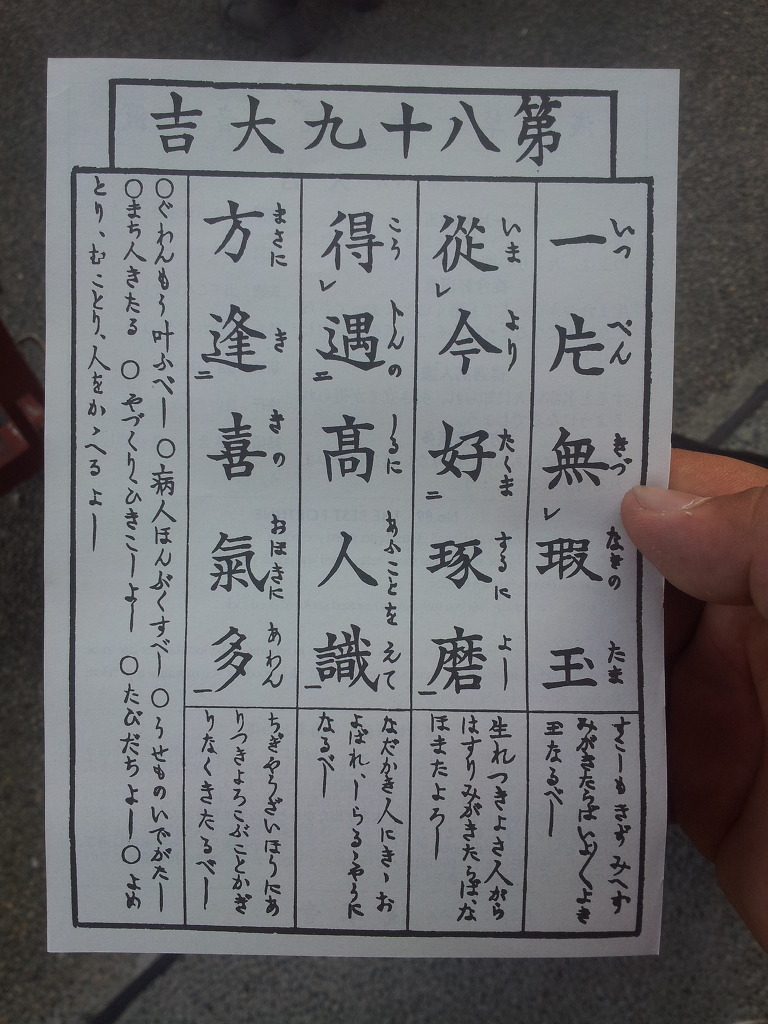 第八十九大吉
一片無瑕玉
いつ ぺん きづ なきの たま
すこしもきずみへず
みがきたらばいよ〳〵よき
玉なるべし
從今好琢磨
いま より たくま するに よし
生れつきよき人がら
はすりみがきたらば、な
ほまたよろし
得遇高人識
ころ 〻んの しるに あふことを えて
なだかき人にきゝお
よばれ、しらるゝやうに
なるべし
方逢喜氣多
まさに き きの おほきに あわん
ちぎやうざいほうにあ
りつきよろこぶことかぎ
りなくきたるべし
〇ぐわんもう叶ふべし 〇病人ほんぶくすべし 〇うせものいでがたし
〇まち人きたる 〇やづくりひきこしよし 〇たびだちよし〇よめ
とり、むことり、人をかゝへるよし